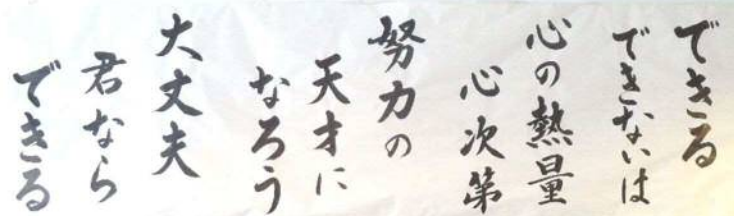 できる
できないは
心の熱量
心次第
努力の
天才に
なろう
大丈夫
君なら
できる